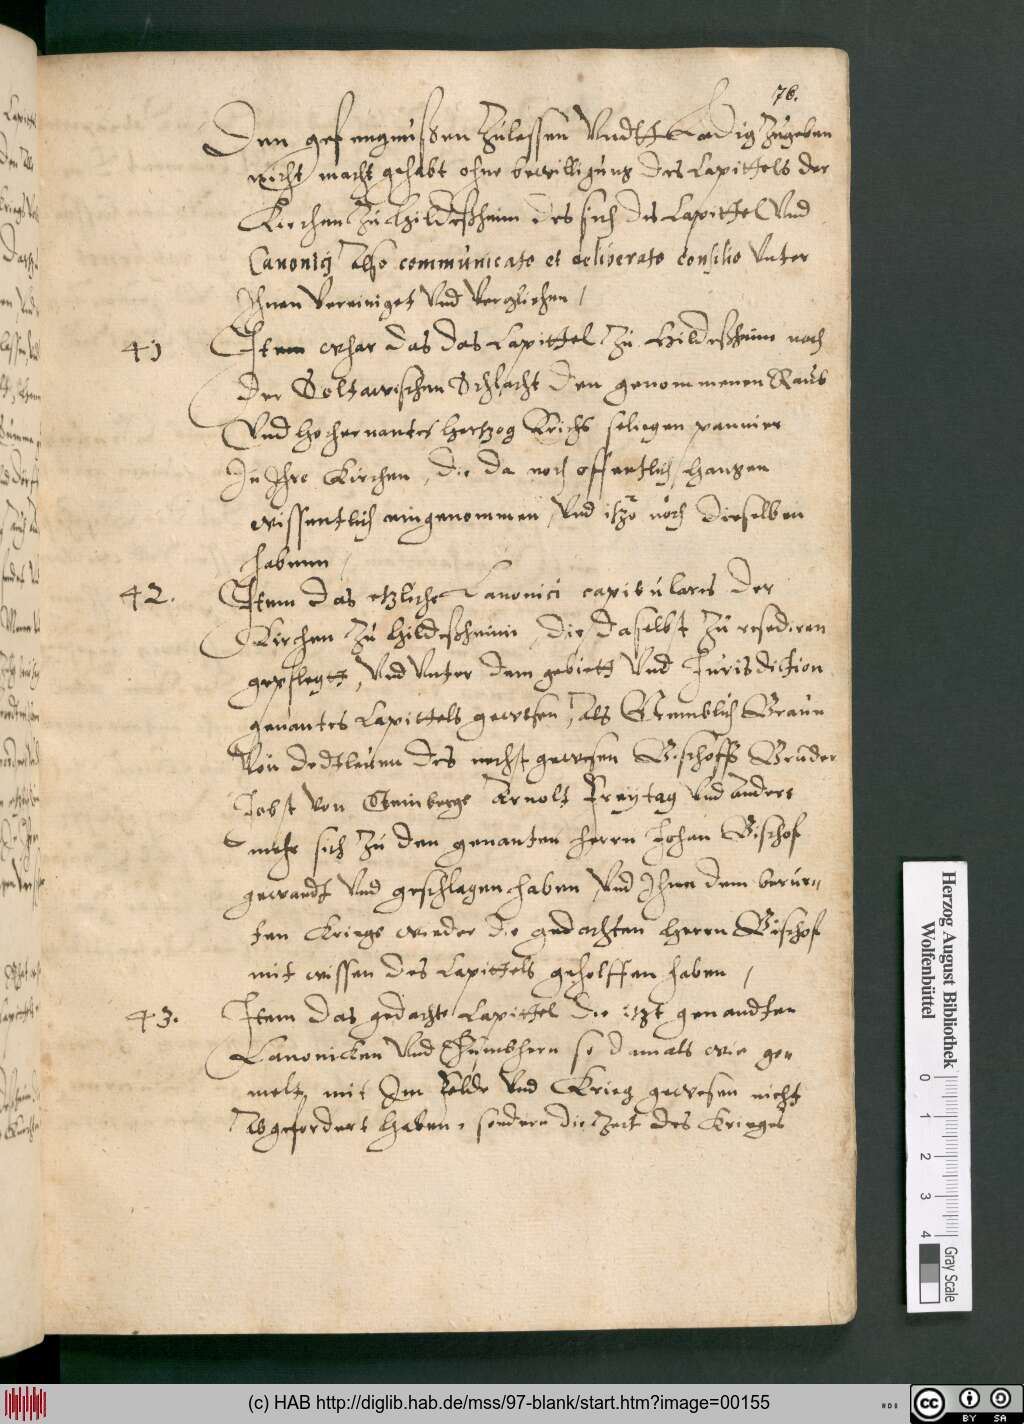 76.
Den gefengnussen zulassen Undt Ledig zugeben
nicht macht gehabt ohne bewilligung des Capittels der
Kirchen zu Hildeßheim des sich das Capittel Und
Canonici Also communicato et deliberato consilio Unter
Ihnen Vereiniget Und Verglichen /
41 Item whar das das Capittel zu Hildeßheim nach
Der Soltawischen Schlacht Den genommenen Raub
Und hochernantes Hertzog Erichs seligen pannier
In Ihre Kirchen, die da noch offentlich hangen
wissentlich eingenommen, Und itzo noch dieselben
habenn /
42. Item das etzliche Canonici capitulares Der
Kirchen zu Hildeßheim, Die daselbst zu resederen
gepflegtt, Und Unter dem gebiett Und Jurisdiction
genantes Capittels gewesen, Als Nemblich Braun
Von des nechst gewesen Bischoffs Bruder
Jobst von Steinberge Arnolt Freytag Und Andere
mehr sich zu den genanten herrn Johan Bischof
gewandt Und geschlagen haben, Und Ihnen dem berur=
ten Kriege wieder die gedachten Herrn Bischof
mit wissen des Capittels geholffen haben /
43. Item das gedachte Capittel Die itzt genandten
Canonicken Und Thumbhern so Damals wie ge=
melt, mit Im Felde Und Krieg gewesen nicht
Abgefordert haben, sondern die Zeit des Krieges
Herzog August Bibliothek
Wolfenbüttel
0 1 2 3 4
Gray Scale
(c) HAB http://diglib.hab.de/mss/97-blank/start.htm?image=00155
cc BY SA